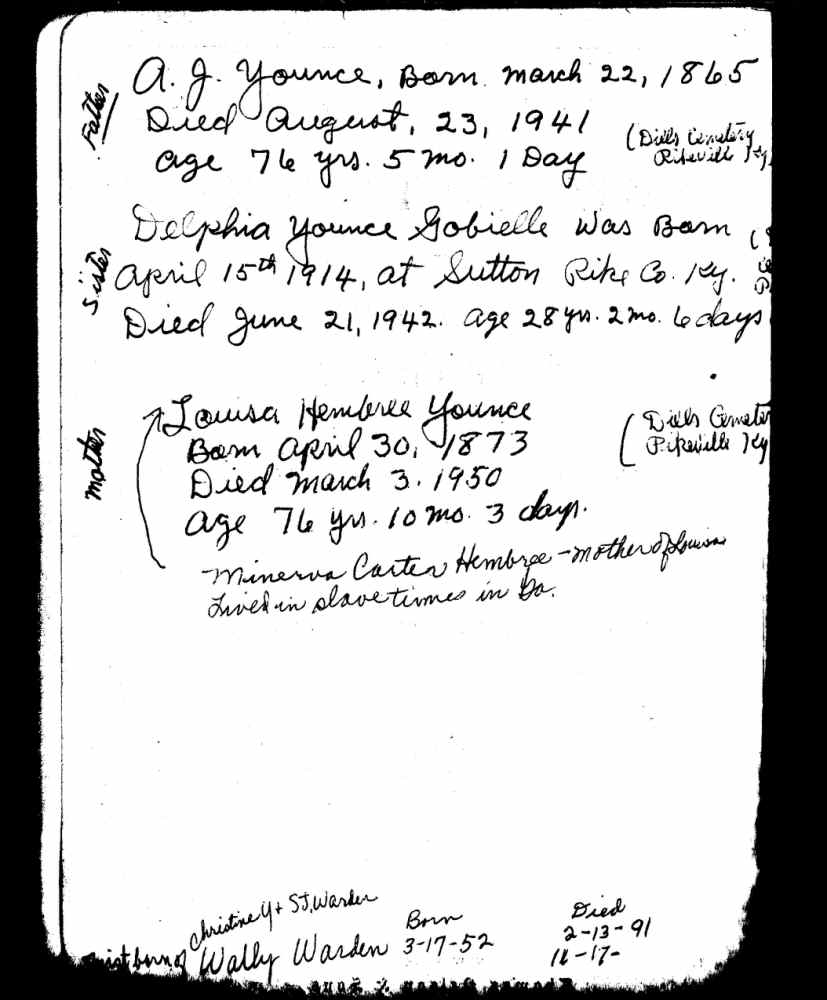 Father
A. J. Younce, Born March 22, 1865
Died August, 23, 1941
(Dills Cemetery
Age 76 yrs. 5 mo. 1 Day
Pikeville Ky
Sister
Delphia Younce Gobielle Was Born
April 15th 1914, at Sutton Pike Co. Ky.
Died June 21, 1942. age 28 yrs. 2 mo. 6 days
Mother
Louisa Hembree Younce
(Dills Cemeter
Born April 30, 1873
Pikeville Ky
Died March 3. 1950
age 76 yrs. 10 mo. 3 days.
Minerva Carter Hembree - mother of Louisa
Lived in slave times in
Christine Y + S.J. Warden
Born
Died
2-13-91
born of Wally Warden 3-17-52
11-17-